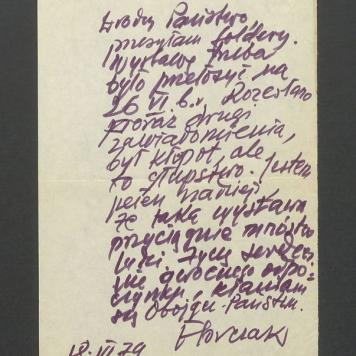 Drodzy Państwo
przesyłam foldery.
Wystawę trzeba
było przełożyć na
26 VI. b.r. Rozesłano
poraz drugi
zawiadomienia,
był kłopot, ale
to głupstwo. Jestem
pełen nadziei,
że taka wystawa
przyciągnie mnóstwo
ludzi. Życzę serdecz.
nie owocnego odpo-
czynku, kłaniam
się Obojgu Państwu.
18. VI 79